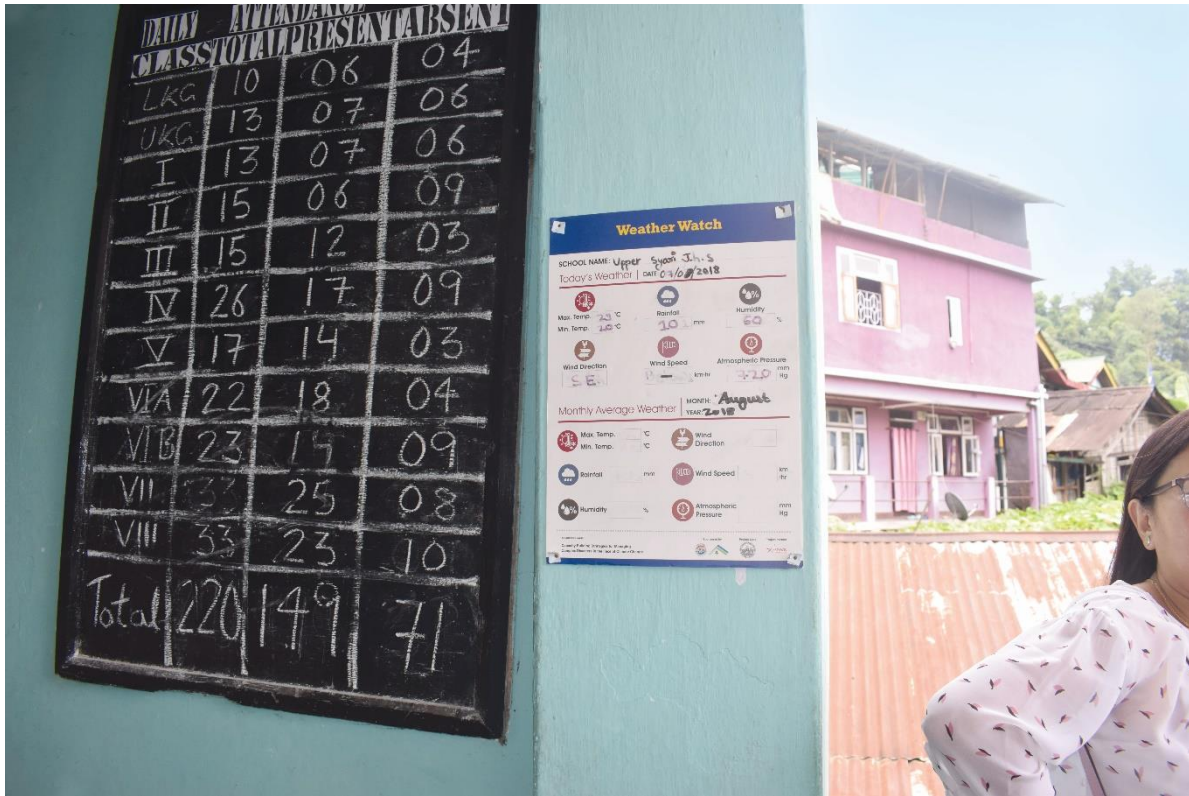 DAILY ATTENDANCE
CLASS TOTAL PRESENT ABSENT
LKG 10 06 04
UKG 13 07 06
I 13 07 06
II 15 06 09
III 15 12 03
IV 26 17 09
V 17 14 03
VI A 22 18 04
VI B 23 09
VII 33 25 08
VIII 33 23 10
Total 220 149 71
Weather Watch
SCHOOL NAME: Upper J.h.S
Today's Weather DATE 2018
Max. Temp. °C Rainfall Humidity
Min. Temp. 20 °C 10 mm 60 %
Wind Direction Wind Speed Atmospheric Pressure
S E. – km/hr 720 mm Hg
Monthly Average Weather MONTH: August
YEAR: 2018
Max. Temp. °C Wind
Min. Temp. °C Direction
Rainfall mm Wind Speed km hr
Humidity % Atmospheric Pressure mm Hg